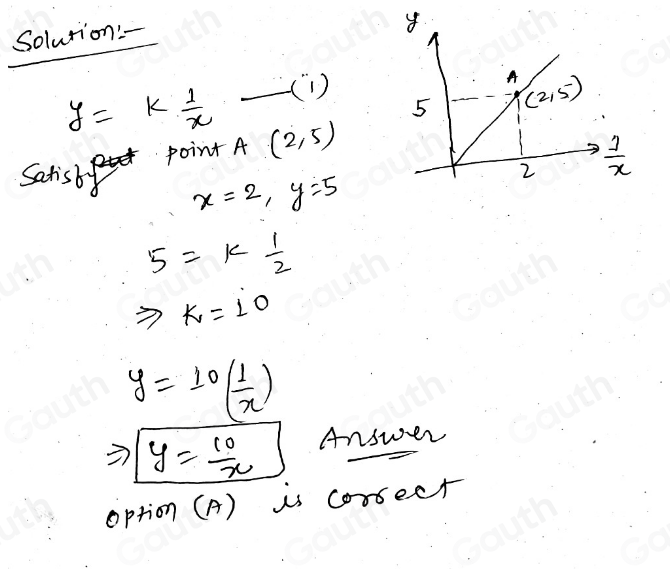 Solution:-
y = K 1/x —(1)
Satisfy point A (2,5)
x = 2, y = 5
5 = K 1/2
⇒ K = 10
y = 10(1/x)
⇒ y = 10/x Answer
option (A) is correct
y
A
5
(2,5)
2
1/x